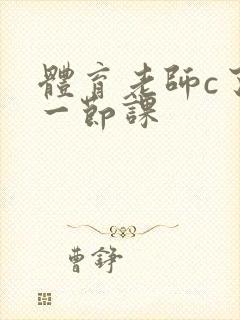 體育老師c了
一節課
曹錚